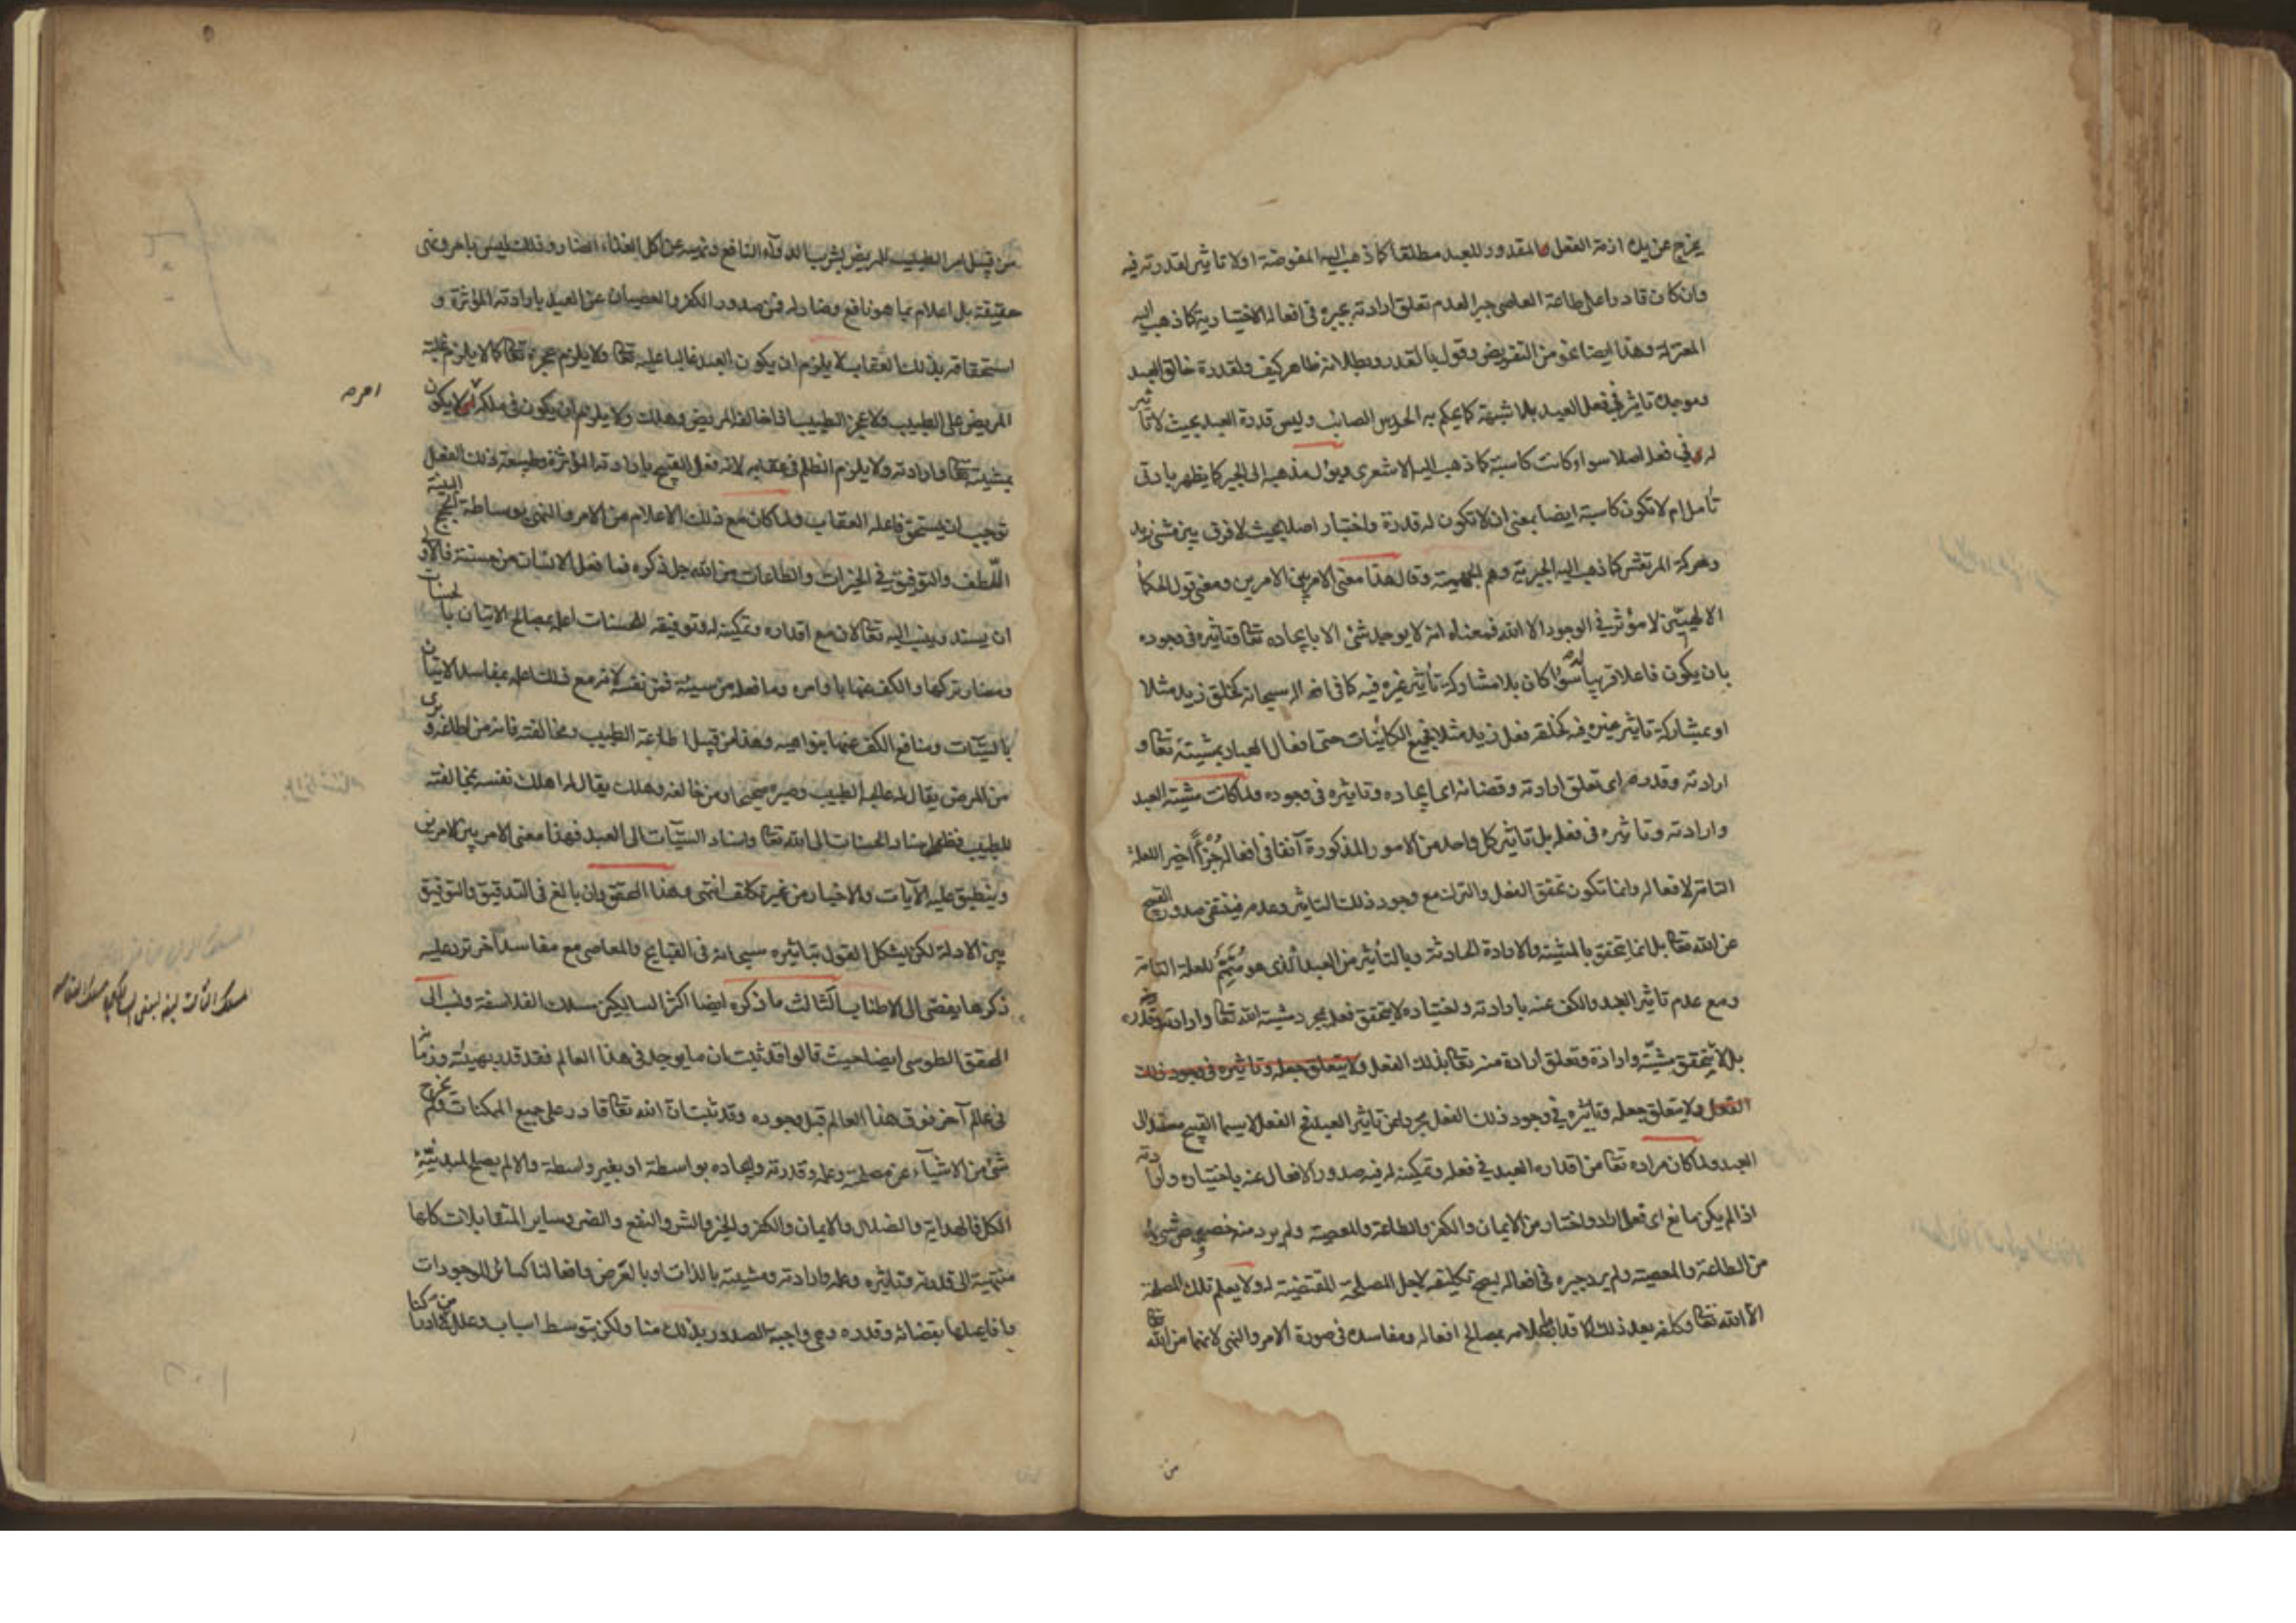 يخرج عن يده ازمة الفعل المقدور للعبد مطلقا كما ذهب اليه المفوضة اولا تاثير لقدرته فيه
وان كان قادرا على طاعة العاصى جبرا لعدم تعلق ارادته بجبره فى افعاله الاختيارية كما ذهب اليه
المعتزلة وهذا ايضا نحو من التفويض وقول بالقدر وبطلانه ظاهر كيف ولقدرة خالق العبد
وموجده تاثير فى فعل العبد بلا شبهة كما يحكم به الحدس الصائب وليس قدرة العبد بحيث لا تاثير
له فى فعله اصلا سواء كانت كاسبة كما ذهب اليه الاشعرى ويؤل مذهبه الى الجبر كما يظهر بادنى
تأمل ام لا تكون كاسبة ايضا بمعنى ان لا تكون له قدرة واختيار اصلا بحيث لا فرق بين مشى زيد
وحركة المرتعش كما ذهب اليه الجبرية وهم الجهمية وقال هذا معنى الامر بين الامرين ومعنى قول الحكماء
الالهيين لا مؤثر فى الوجود الا الله فمعناه انه لا يوجد شئ الا بايجاده تعالى وتأثيره فى وجوده
بان يكون فاعلا قريبا له سواء كان بلا مشاركة تأثير غيره فيه كما فى افعاله سبحانه كخلق زيد مثلا
او بمشاركة تاثير غيره فيه كخلقه فعل زيد مثلا فجميع الكائنات حتى افعال العباد بمشيته تعالى و
ارادته وقدره اى تعلق ارادته وقضائه اى ايجاده وتاثيره فى وجوده ولما كانت مشية العبد
وارادته وتاثيره فى فعله بل تاثير كل واحد من الامور المذكورة آنفا فى افعاله جزءا اخيرا للعلة
التامة لافعاله وانما تكون تحقق الفعل والترك مع وجود ذلك التاثير وعدمه فينتفى صدور القبيح
عن الله تعالى بل انما تحقق بالمشية والارادة الحادثة وبالتأثير من العبد الذى هو متمم للعلة التامة
ومع عدم تاثير العبد والكف عنه بارادته واختياره لا يتحقق فعله بمجرد مشية الله تعالى وارادته وقدره
بل لا يتحقق مشية وارادة وتعلق ارادة منه تعالى بذلك الفعل ولا يتعلق جعله وتاثيره فى وجود ذلك
الفعل ولا يتعلق جعله وتاثيره فى وجود ذلك الفعل مجردا عن تاثير العبد فى الفعل لا سيما القبيح مستند الى
العبد ولما كان مراده تعالى من اقدار العبد فى فعله وتمكينه له فيه صدور الافعال عنه باختياره وارادته
اذا لم يكن مانع اى فعل اراد واختار من الايمان والكفر والطاعة والمعصية ولم يرد منه خصوص شئ
من الطاعة والمعصية ولم يرد جبره فى افعاله ليصح تكليفه لاجل المصلحة المقتضية له ولا يعلم تلك المصلحة
الا الله تعالى وكلفه بعد ذلك الاقدار باعلامه بمصالح افعاله ومفاسده فى صورة الامر والنهى لانهما من الله تعالى
من
من قبيل امر الطبيب للمريض بشرب الدواء النافع ونهيه عن اكل الغذاء الضار وذلك ليس بامر ونهى
حقيقة بل اعلام بما هو نافع وضار له فمن صدور الكفر والعصيان عن العبد بارادته المؤثرة و
استحقاقه بذلك العقاب لا يلزم ان يكون العبد غالبا عليه تعالى ولا يلزم عجزه تعالى كما لا يلزم غلبة
المريض على الطبيب ولا عجز الطبيب اذا خالفه المريض وهلك ولا يلزم ان يكون فى ملكه امر لا يكون
امر صح
بمشيته تعالى وارادته ولا يلزم الظلم فى عقابه لانه فعل القبيح بارادته المؤثرة وطبيعة ذلك الفعل
توجب ان يستحق فاعله العقاب ولما كان مع ذلك الاعلام من الامر والنهى بوساطة الحجج البينة
اللطف والتوفيق فى الخيرات والطاعات من الله جل ذكره فما فعل الانسان من حسنة فالاولى
ان يسند وينسب اليه تعالى لان مع اقداره وتمكينه له وتوفيقه للحسنات اعلمه بمصالح الاتيان بالحسنات
ومضار تركها والكف عنها باوامره وما فعله من سيئة فمن نفسه لانه مع ذلك اعلمه بمفاسد الاتيان
بالسيئات ومنافع الكف عنها بنواهيه وهذا من قبيل اطاعة الطبيب ومخالفته فانه من اطاعه وبرى
من المرض يقال له عالجه الطبيب وصيره صحيحا ومن خالفه وهلك يقال له اهلك نفسه بمخالفته
للطبيب فظهر اسناد الحسنات الى الله تعالى واسناد السيئات الى العبد فهذا معنى الامر بين الامرين
وينطبق عليه الآيات والاخبار من غير تكلف انتهى وهذا المحقق وان بالغ فى التدقيق والتوفيق
بين الادلة لكن يشكل القول بتاثيره سبحانه فى القبايح والمعاصى مع مفاسد آخر ترد عليه
ذكرها يفضى الى الاطناب الثالث ما ذكره ايضا اكثر السالكين مسلك الفلاسفة ونسب الى
المحقق الطوسى ايضا حيث قالوا قد ثبت ان ما يوجد فى هذا العالم فقد قدر بهيئته وزمانه
فى عالم آخر فوق هذا العالم قبل وجوده وقد ثبت ان الله تعالى قادر على جميع الممكنات ولم يخرج
شئ من الاشياء عن مصلحته وعلمه وقدرته وايجاده بواسطة او بغير واسطة والا لم يصلح لمبدئية
الكل فالهداية والضلال والايمان والكفر والخير والشر والنفع والضر وساير المتقابلات كلها
منتهية الى قدرته وتاثيره وعلمه وارادته ومشيته بالذات او بالعرض وافعالنا كسائر الموجودات
وافاعيلها بقضائه وقدره وهى واجبة الصدور بذلك منا ولكن بتوسط اسباب وعلل من